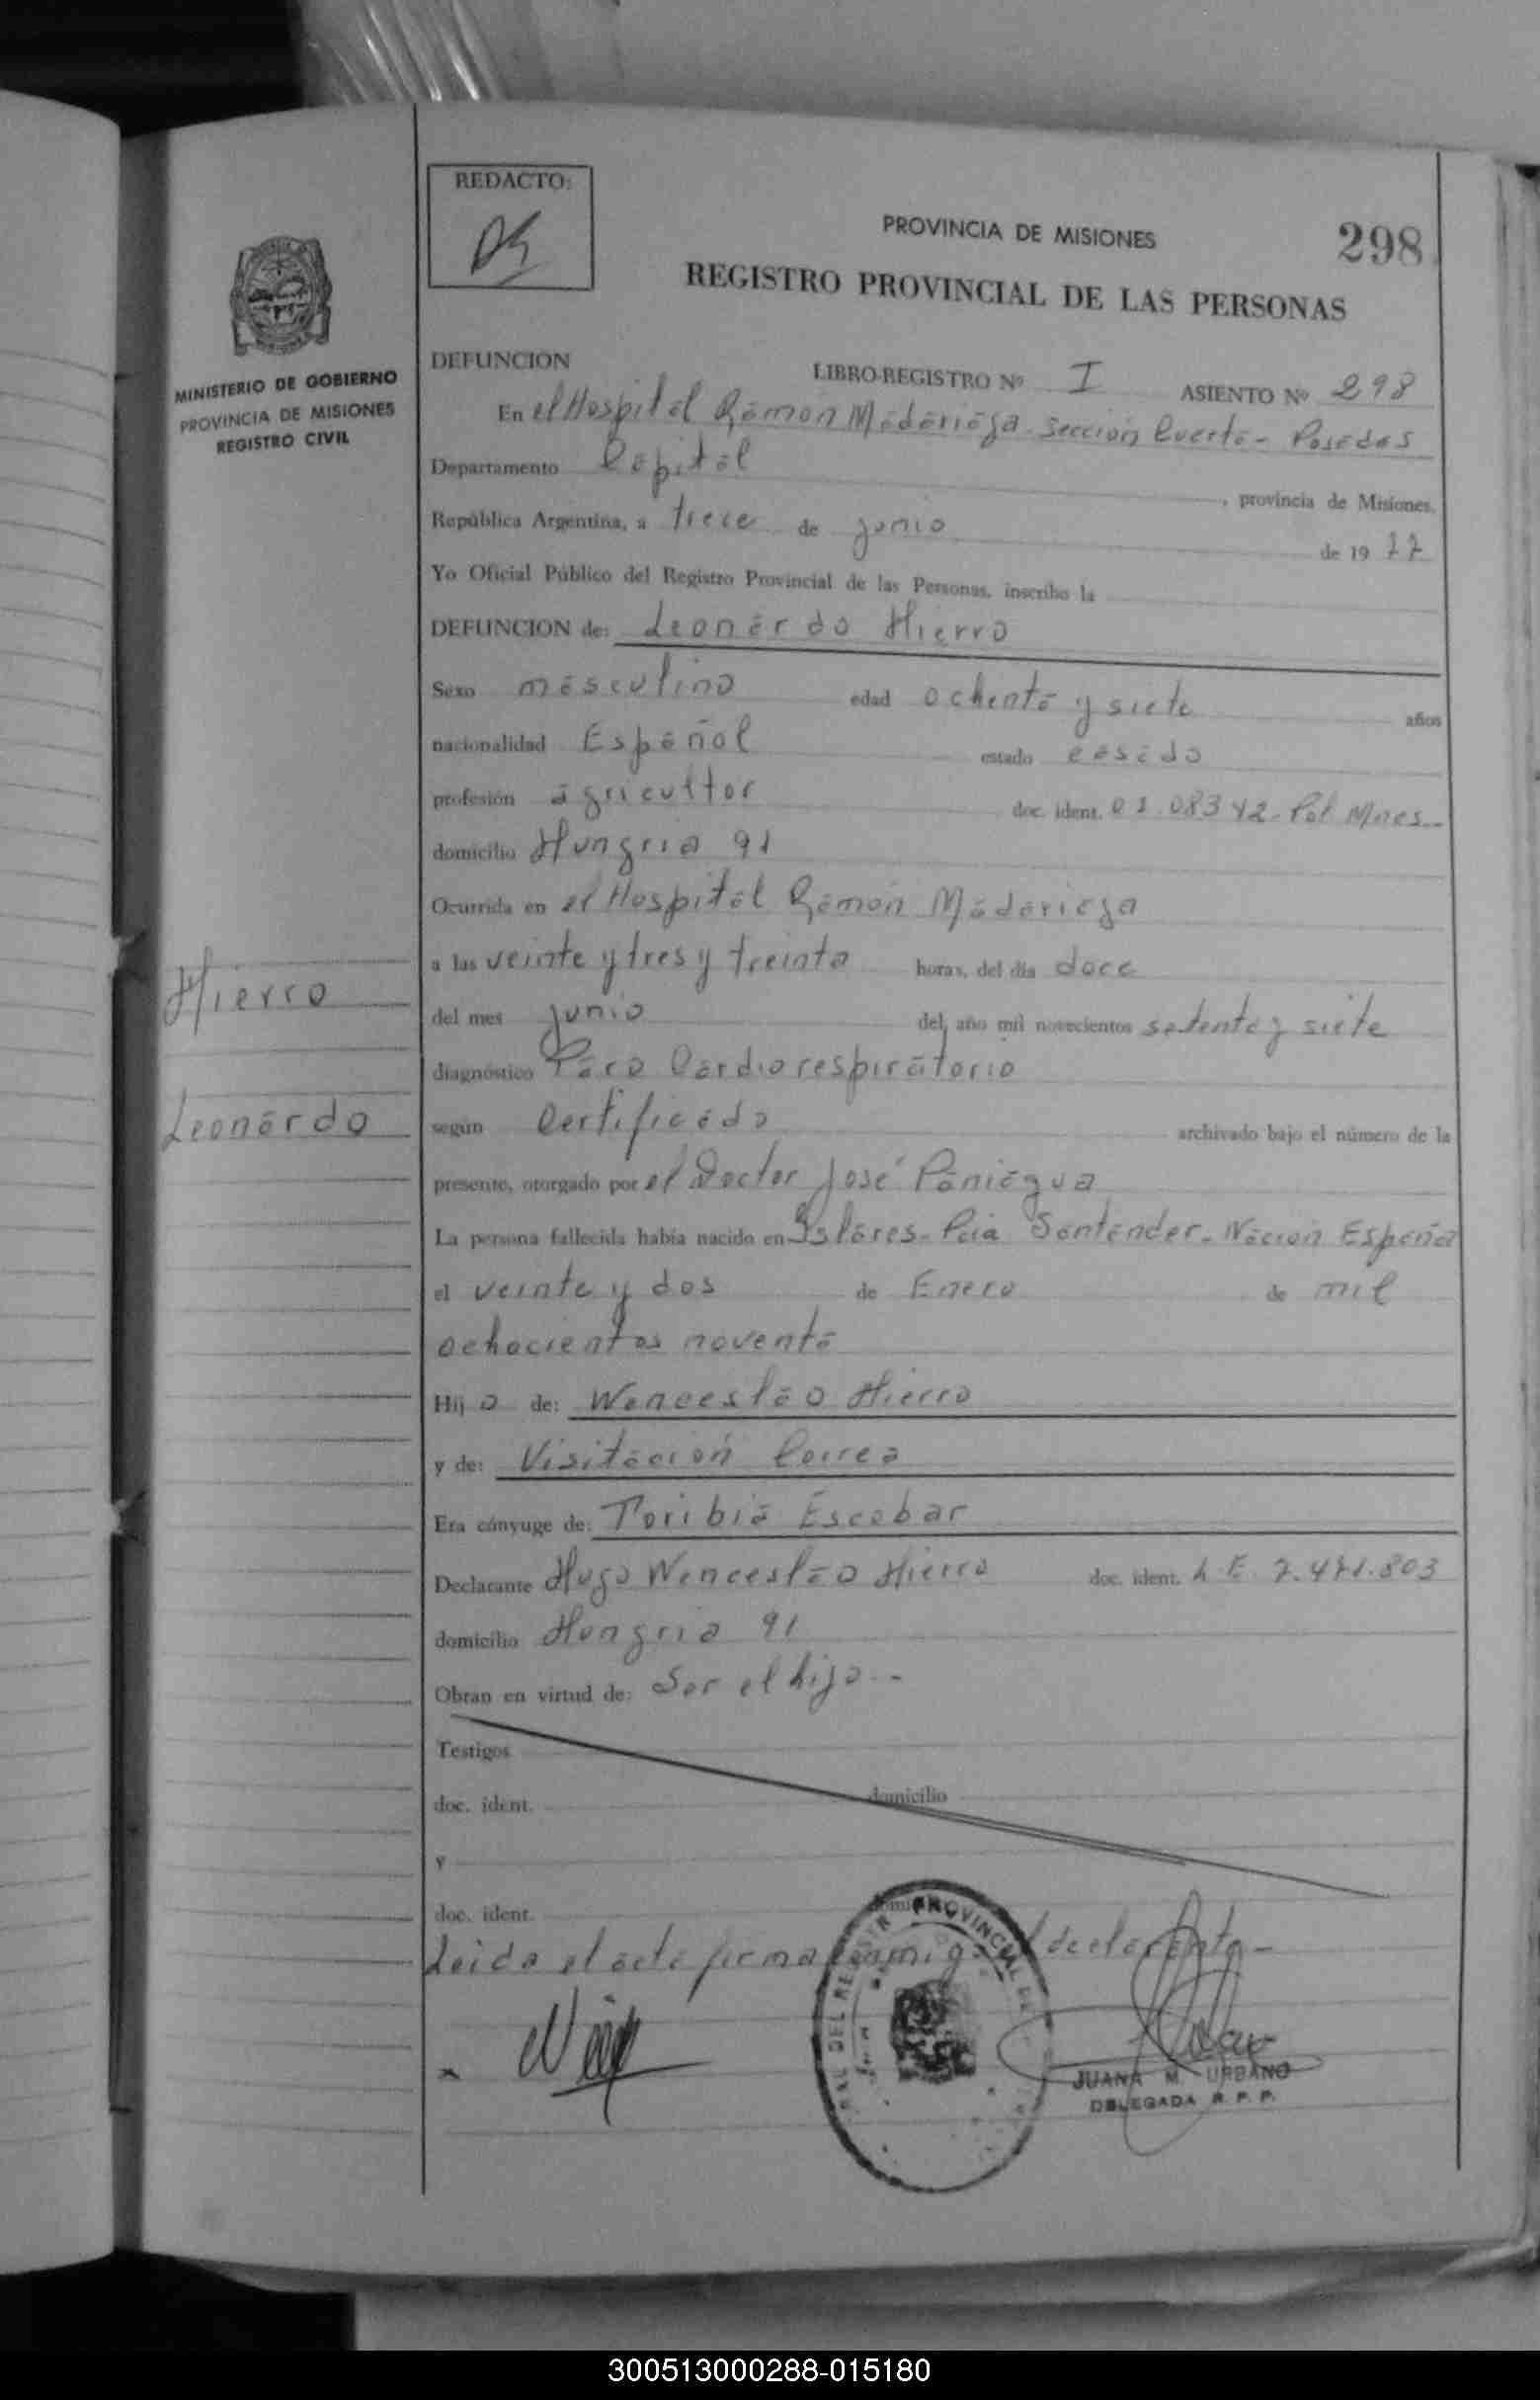 REDACTO:
PROVINCIA DE MISIONES
298
REGISTRO PROVINCIAL DE LAS PERSONAS
MINISTERIO DE GOBIERNO
PROVINCIA DE MISIONES
REGISTRO CIVIL
DEFUNCION LIBRO-REGISTRO Nº I ASIENTO Nº 298
En el Hospital Ramón Madariaga - Sección Cuarta - Posadas
Departamento Capital, provincia de Misiones,
República Argentina, a trece de junio de 1977
Yo Oficial Público del Registro Provincial de las Personas, inscribo la
DEFUNCION de: Leonardo Hierro
Sexo masculino edad ochenta y siete años
nacionalidad Español estado casado
profesión agricultor doc. ident. 01.08342 - Pol Mnes -
domicilio Hungria 91
Ocurrida en el Hospital Ramón Madariaga
a las veinte y tres y treinta horas, del día doce
Hierro
del mes junio del año mil novecientos setenta y siete
diagnóstico Paro Cardiorespiratorio
Leonardo
según Certificado archivado bajo el número de la
presente, otorgado por el Doctor José Paniagua
La persona fallecida había nacido en Islares - Pcia Santander - Nación España
el veinte y dos de Enero de mil
ochocientos noventa
Hijo de: Wenceslao Hierro
y de: Visitación Correa
Era cónyuge de: Toribia Escobar
Declarante Hugo Wenceslao Hierro doc. ident. L E 7.471.803
domicilio Hungria 91
Obran en virtud de: Ser el hijo --
Testigos
doc. ident. domicilio
y
doc. ident.
Leida el acta firma conmigo el declarante -
PROVINCIAL
JUANA M. URBANO
DELEGADA R. P. P.
300513000288-015180